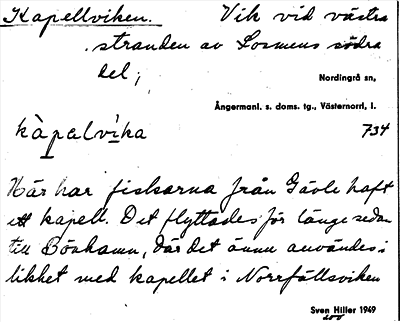 Kapellviken. Vik vid västra
stranden av Losmens södra
del;
Nordingrå sn,
Ångermanl. s. doms. tg., Västernorrl. l.
kàpalvika 734
Här har fiskarna från Gävle haft
ett kapell. Det flyttades för länge sedan
till Bönhamn, där det ännu användes i
likhet med kapellet i Norrfällsviken
Sven Hiller 1949